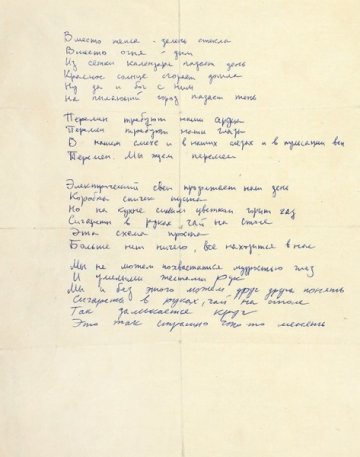 Вместо тепла - зелень стекла
Вместо огня - дым
Из сетки календаря падает день
Красное солнце сгорает дотла
Ну да и бог с ним
На пылающий город падает тень

Перемен требуют наши сердца
Перемен требуют наши глаза
В нашем смехе и в наших слезах и в пульсации вен
Перемен. Мы ждем перемен

Электрический свет продолжает наш день
Коробка спичек пуста
Но на кухне синим цветком горит газ
Сигареты в руках, чай на столе
Эта схема проста
Больше нет ничего, все находится в нас

Мы не можем похвастаться мудростью глаз
И умелыми жестами рук
Мы и без этого можем друг друга понять
Сигареты в руках, чай на столе
Так замыкается круг
Это так страшно что-то менять